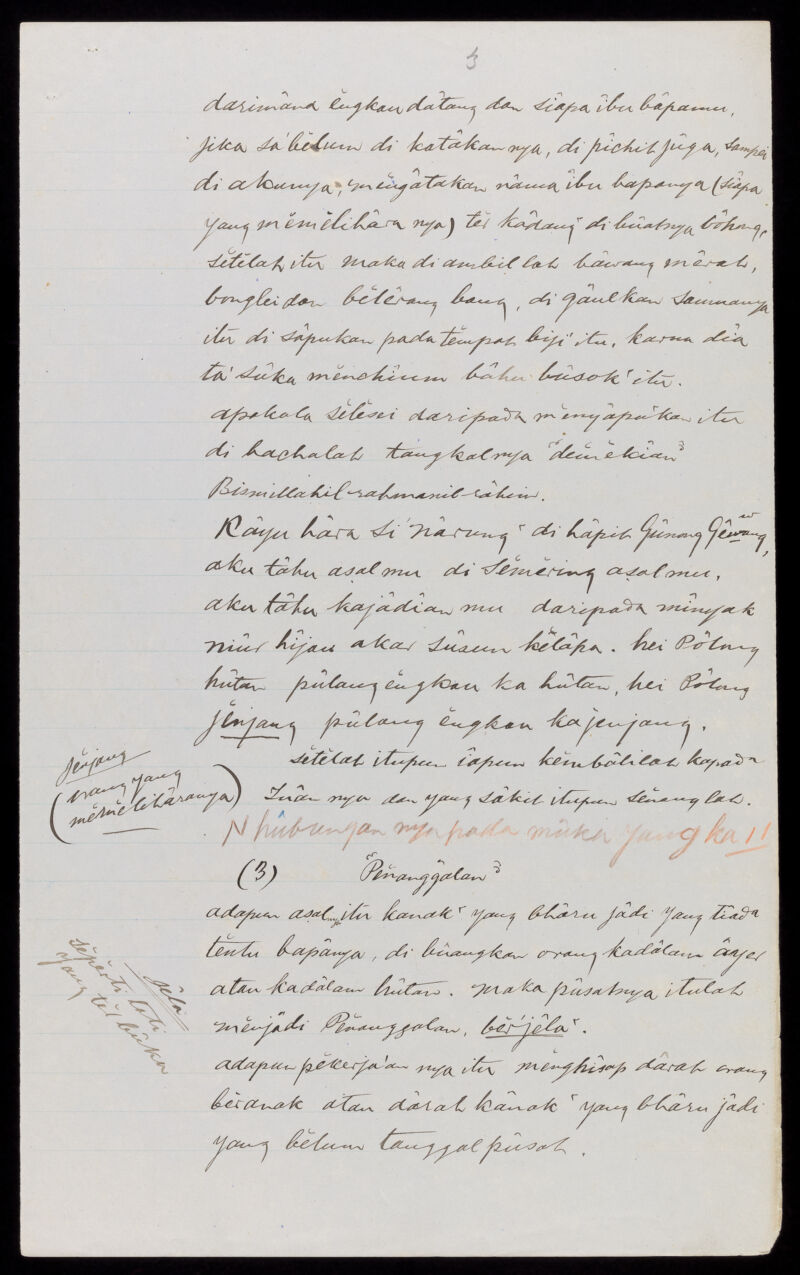 3
darimâna ĕngkau dâtang dan siâpa îbu bâpamu,
jika sa'bĕlum di katâkan nya, di pîchit jûga, sampei
di akunya, mĕngâtakan nâma îbu bapanya (siâpa
yang mĕmĕlihâra nya) tĕr kâdang² di bûatnya bôhong,
sĕtĕlah itu maka di ambil lah bâwang mêrah,
bonglei dan bĕlêrang bang, di gâulkan samuanya
itu di sâpukan pada tĕmpat biji² itu, karna dîa
ta' sûka mĕnchium bâhu bûsok² itu.
apakala sĕlĕsei daripada mĕnyâpukan itu
di bachalah tangkalnya "dĕmĕkîan"
Bismillahil-rahmanil-râhim.
Kâyu hâra si nârung² di hâpit Gûnong Gêwang,
aku tâhu asal mu di Sĕmĕring asal mu,
aku tâhu kajâdîan mu daripada mînyak
niur hîjau akar sûsun kĕlâpa. hei Pôlong
hûtan pûlang ĕngkau ka hûtan, hei Pôlong
jĕnjang pûlang ĕngkau kajenjang.
sĕtĕlah itupun îapun kĕmbâlilah kapada
Tûan nya dan yang sâkit itupun sĕnang lah.
jĕnjang
(orang yang
mĕmĕlihâranya)
N hûbungan nya pada mûka yang ka 11
(3) "Pĕnanggâlan"
adapun asalnya itu kanak² yang bhâru jâdi yang tîada
tĕntu bapânya, di bûangkan orang kadâlam âyer
atau kadâlam hûtan. maka pûsatnya itulah
mĕnjâdi Pĕnanggalan, bĕrjêla².
jêla
sĕpĕrti tali
yang tĕr bûka
adapun pĕkĕrja'an nya itu mĕnghîsap dârah orang
bĕranak atau dârah kânak² yang bhâru jâdi
yang bĕlum tanggal pûsat.